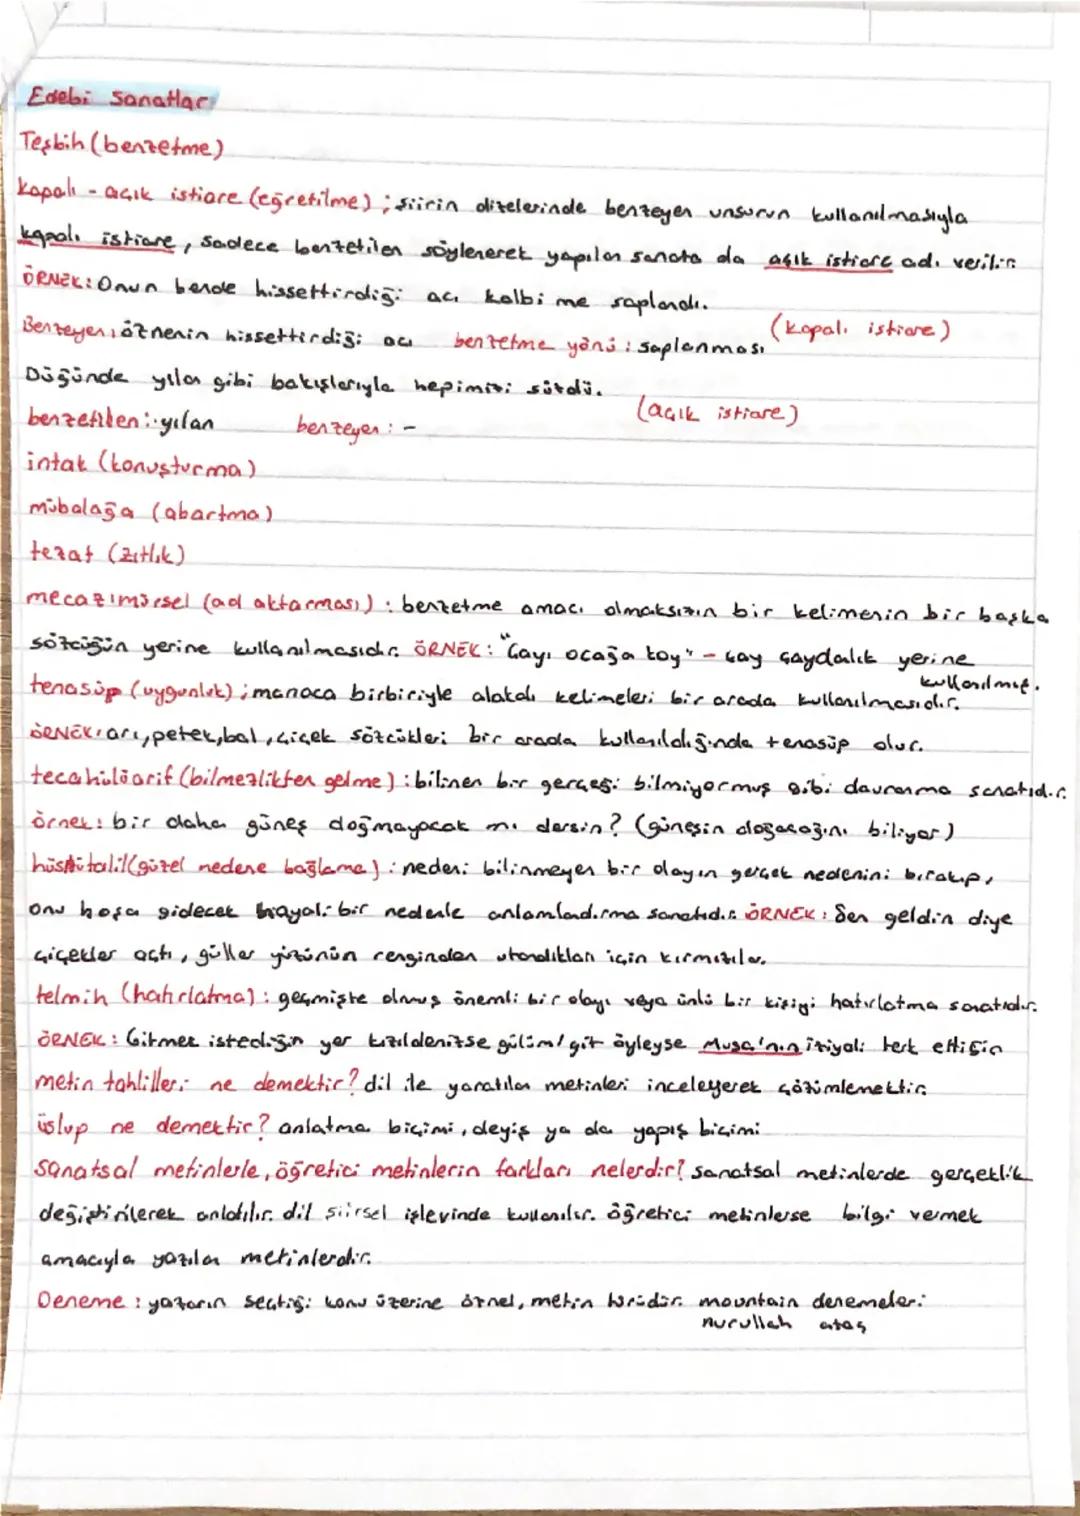 Edebi Sanatlar
Teşbih (benzetme)
kapalı - açık istiare (eğretilme) ; şiirin dizelerinde benzeyen unsurun kullanılmasıyla
kapalı istiare, sadece benzetilen söylenerek yapılan sanata da açık istiare adı verilir.
ÖRNEK: Onun bende hissettirdiği acı kalbime saplandı.
(kapalı istiare)
Benzeyen: öznenin hissettirdiği acı benzetme yönü : saplanması
Düğünde yılan gibi bakışlarıyla hepimizi süzdü.
(açık istiare)
benzetilen: yılan benzeyen : -
intak (konuşturma)
mübalağa (abartma)
tezat (zıtlık)
mecazımürsel (ad aktarması) : benzetme amacı olmaksızın bir kelimenin bir başka
sözcüğün yerine kullanılmasıdır. ÖRNEK: "Çayı ocağa koy" - çay çaydanlık yerine
kullanılmış.
tenasüp (uygunluk) ; manaca birbiriyle alakalı kelimeleri bir arada kullanılmasıdır.
ÖRNEK: arı, petek, bal, çiçek sözcükleri bir arada kullanıldığında tenasüp olur.
tecahülüarif (bilmezlikten gelme) : bilinen bir gerçeği bilmiyormuş gibi davranma sanatıdır.
örnek: bir daha güneş doğmayacak mı dersin? (güneşin doğacağını biliyor)
hüsnütalil (güzel nedene bağlama) : nedeni bilinmeyen bir olayın gerçek nedenini bırakıp,
onu hoşa gidecek hayali bir nedenle anlamlandırma sanatıdır. ÖRNEK : Sen geldin diye
çiçekler açtı, güller yüzünün renginden utandıkları için kırmızılar.
telmih (hatırlatma) : geçmişte olmuş önemli bir olayı veya ünlü bir kişiyi hatırlatma sanatıdır.
ÖRNEK : Gitmek istediğin yer kızıldenizse gülüm / git öyleyse Musa'nın terk ettiğin
metin tahlilleri ne demektir? dil ile yaratılan metinleri inceleyerek çözümlemektir.
üslup ne demektir? anlatma biçimi, deyiş ya da yapış biçimi
Sanatsal metinlerle, öğretici metinlerin farkları nelerdir? sanatsal metinlerde gerçeklik
değiştirilerek anlatılır. dil şiirsel işlevinde kullanılır. öğretici metinlerse bilgi vermek
amacıyla yazılan metinlerdir.
Deneme : yazarın seçtiği konu üzerine metin türüdür. mountain denemeleri
nurullah ataç